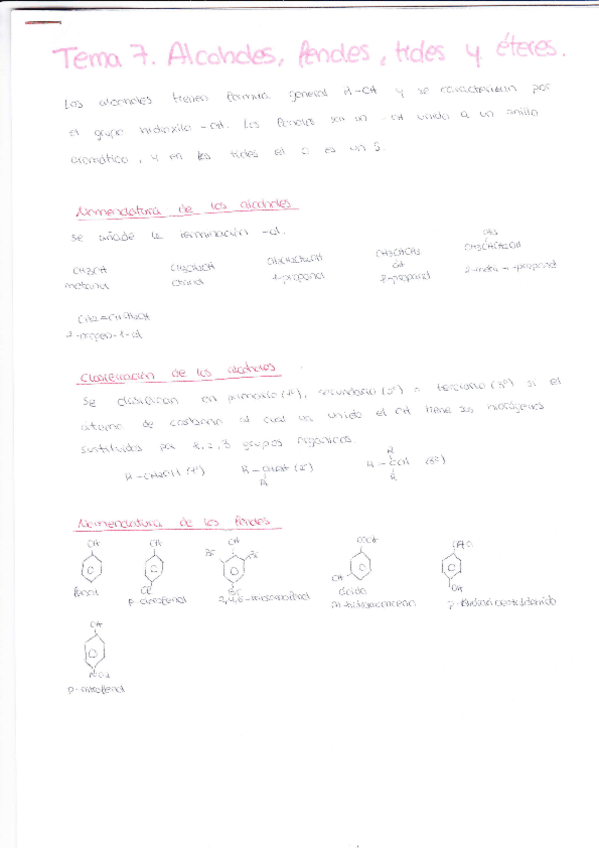 Tema 7. Alcoholes, fenoles, tioles y éteres.
Los alcoholes tienen fórmula general R-OH y se caracterizan por
el grupo hidroxilo -OH. Los fenoles son un -OH unido a un anillo
aromático, y en los tioles el O es un S.
Nomenclatura de los alcoholes
Se añade la terminación -ol.
CH3
CH3OH CH3CH2OH CH3CH2CH2OH CH3CHCH3 CH3CHCH2OH
OH
metanol etanol 1-propanol 2-propanol 2-metil-1-propanol
CH2=CHCH2OH
2-propen-1-ol
Clasificación de los alcoholes
Se clasifican en primario (1º), secundario (2º) o terciario (3º) si el
átomo de carbono al cual va unido el OH tiene sus hidrógenos
sustituidos por 1, 2, 3 grupos orgánicos.
R
R-CH2OH (1º) R-CHOH (2º) R-COH (3º)
R R
Nomenclatura de los fenoles
OH OH OH COOH CHO
Br Br
OH
Cl Br OH
fenol p-clorofenol 2,4,6-tribromofenol ácido
m-hidroxibenzoico p-hidroxibenzaldehido
OH
NO2
p-nitrofenol